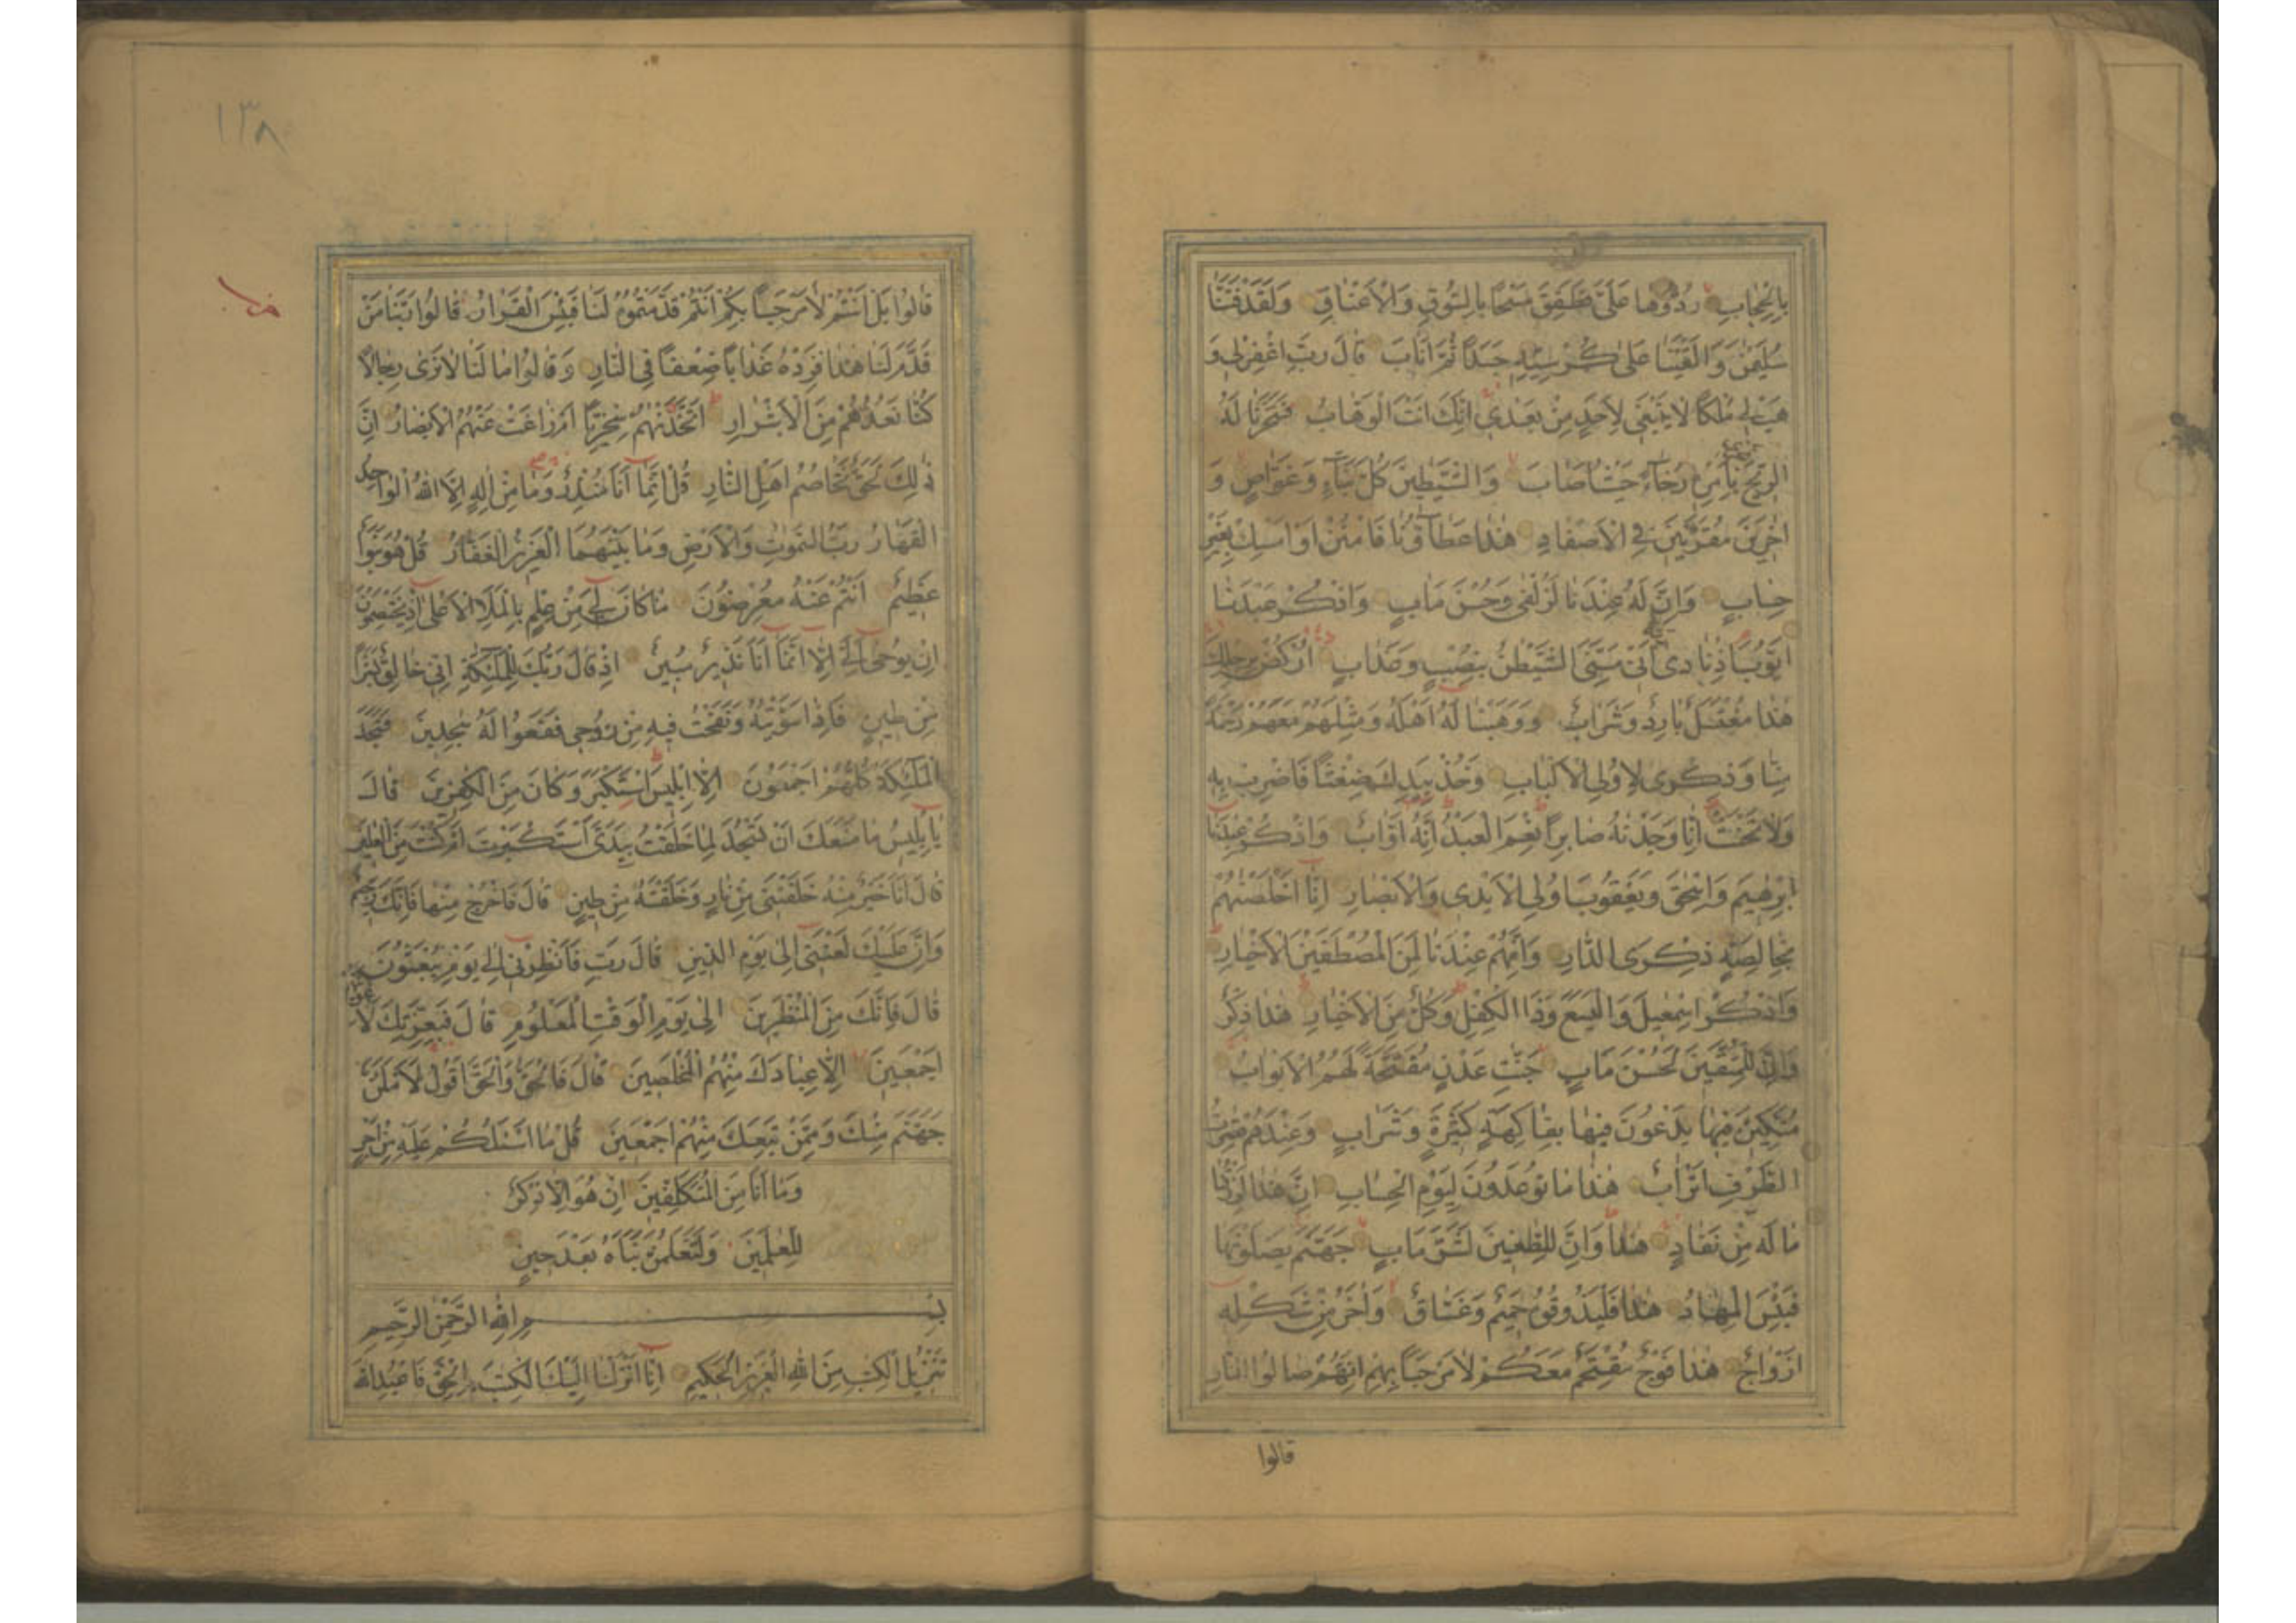 بِالْحِجَابِ رُدُّوهَا عَلَىَّ فَطَفِقَ مَسْحًا بِالسُّوقِ وَالْاَعْنَاقِ وَلَقَدْ فَتَنَّا
سُلَيْمٰنَ وَاَلْقَيْنَا عَلٰى كُرْسِيِّهِ جَسَدًا ثُمَّ اَنَابَ قَالَ رَبِّ اغْفِرْلِى وَ
هَبْ لِى مُلْكًا لَا يَنْبَغِى لِاَحَدٍ مِنْ بَعْدِى اِنَّكَ اَنْتَ الْوَهَّابُ فَسَخَّرْنَا لَهُ
الرِّيحَ تَجْرِى بِاَمْرِهِ رُخَاءً حَيْثُ اَصَابَ وَالشَّيٰطِينَ كُلَّ بَنَّاءٍ وَغَوَّاصٍ وَ
اٰخَرِينَ مُقَرَّنِينَ فِى الْاَصْفَادِ هٰذَا عَطَاؤُنَا فَامْنُنْ اَوْ اَمْسِكْ بِغَيْرِ
حِسَابٍ وَاِنَّ لَهُ عِنْدَنَا لَزُلْفٰى وَحُسْنَ مَاٰبٍ وَاذْكُرْ عَبْدَنَا
اَيُّوبَ اِذْ نَادٰى رَبَّهُ اَنِّى مَسَّنِىَ الشَّيْطٰنُ بِنُصْبٍ وَعَذَابٍ اُرْكُضْ بِرِجْلِكَ
هٰذَا مُغْتَسَلٌ بَارِدٌ وَشَرَابٌ وَوَهَبْنَا لَهُ اَهْلَهُ وَمِثْلَهُمْ مَعَهُمْ رَحْمَةً
مِنَّا وَذِكْرٰى لِاُولِى الْاَلْبَابِ وَخُذْ بِيَدِكَ ضِغْثًا فَاضْرِبْ بِهِ
وَلَا تَحْنَثْ اِنَّا وَجَدْنٰهُ صَابِرًا نِعْمَ الْعَبْدُ اِنَّهُ اَوَّابٌ وَاذْكُرْ عِبٰدَنَا
اِبْرٰهِيمَ وَاِسْحٰقَ وَيَعْقُوبَ اُولِى الْاَيْدِى وَالْاَبْصَارِ اِنَّا اَخْلَصْنٰهُمْ
بِخَالِصَةٍ ذِكْرَى الدَّارِ وَاِنَّهُمْ عِنْدَنَا لَمِنَ الْمُصْطَفَيْنَ الْاَخْيَارِ
وَاذْكُرْ اِسْمٰعِيلَ وَالْيَسَعَ وَذَا الْكِفْلِ وَكُلٌّ مِنَ الْاَخْيَارِ هٰذَا ذِكْرٌ
وَاِنَّ لِلْمُتَّقِينَ لَحُسْنَ مَاٰبٍ جَنّٰتِ عَدْنٍ مُفَتَّحَةً لَهُمُ الْاَبْوَابُ
مُتَّكِئِينَ فِيهَا يَدْعُونَ فِيهَا بِفَاكِهَةٍ كَثِيرَةٍ وَشَرَابٍ وَعِنْدَهُمْ قٰصِرٰتُ
الطَّرْفِ اَتْرَابٌ هٰذَا مَا تُوعَدُونَ لِيَوْمِ الْحِسَابِ اِنَّ هٰذَا لَرِزْقُنَا
مَا لَهُ مِنْ نَفَادٍ هٰذَا وَاِنَّ لِلطّٰغِينَ لَشَرَّ مَاٰبٍ جَهَنَّمَ يَصْلَوْنَهَا
فَبِئْسَ الْمِهَادُ هٰذَا فَلْيَذُوقُوهُ حَمِيمٌ وَغَسَّاقٌ وَاٰخَرُ مِنْ شَكْلِهِ
اَزْوَاجٌ هٰذَا فَوْجٌ مُقْتَحِمٌ مَعَكُمْ لَا مَرْحَبًا بِهِمْ اِنَّهُمْ صَالُوا النَّارِ
قالوا
١٣٨
قَالُوا بَلْ اَنْتُمْ لَا مَرْحَبًا بِكُمْ اَنْتُمْ قَدَّمْتُمُوهُ لَنَا فَبِئْسَ الْقَرَارُ قَالُوا رَبَّنَا مَنْ
قَدَّمَ لَنَا هٰذَا فَزِدْهُ عَذَابًا ضِعْفًا فِى النَّارِ وَقَالُوا مَا لَنَا لَا نَرٰى رِجَالًا
كُنَّا نَعُدُّهُمْ مِنَ الْاَشْرَارِ اَتَّخَذْنٰهُمْ سِخْرِيًّا اَمْ زَاغَتْ عَنْهُمُ الْاَبْصَارُ اِنَّ
ذٰلِكَ لَحَقٌّ تَخَاصُمُ اَهْلِ النَّارِ قُلْ اِنَّمَا اَنَا مُنْذِرٌ وَمَا مِنْ اِلٰهٍ اِلَّا اللّٰهُ الْوَاحِدُ
الْقَهَّارُ رَبُّ السَّمٰوٰتِ وَالْاَرْضِ وَمَا بَيْنَهُمَا الْعَزِيزُ الْغَفَّارُ قُلْ هُوَ نَبَؤٌا
عَظِيمٌ اَنْتُمْ عَنْهُ مُعْرِضُونَ مَا كَانَ لِىَ مِنْ عِلْمٍ بِالْمَلَاِ الْاَعْلٰى اِذْ يَخْتَصِمُونَ
اِنْ يُوحٰى اِلَىَّ اِلَّا اَنَّمَا اَنَا نَذِيرٌ مُبِينٌ اِذْ قَالَ رَبُّكَ لِلْمَلٰئِكَةِ اِنِّى خَالِقٌ بَشَرًا
مِنْ طِينٍ فَاِذَا سَوَّيْتُهُ وَنَفَخْتُ فِيهِ مِنْ رُوحِى فَقَعُوا لَهُ سٰجِدِينَ فَسَجَدَ
الْمَلٰئِكَةُ كُلُّهُمْ اَجْمَعُونَ اِلَّا اِبْلِيسَ اسْتَكْبَرَ وَكَانَ مِنَ الْكٰفِرِينَ قَالَ
يَا اِبْلِيسُ مَا مَنَعَكَ اَنْ تَسْجُدَ لِمَا خَلَقْتُ بِيَدَىَّ اَسْتَكْبَرْتَ اَمْ كُنْتَ مِنَ الْعَالِينَ
قَالَ اَنَا خَيْرٌ مِنْهُ خَلَقْتَنِى مِنْ نَارٍ وَخَلَقْتَهُ مِنْ طِينٍ قَالَ فَاخْرُجْ مِنْهَا فَاِنَّكَ رَجِيمٌ
وَاِنَّ عَلَيْكَ لَعْنَتِى اِلٰى يَوْمِ الدِّينِ قَالَ رَبِّ فَاَنْظِرْنِى اِلٰى يَوْمِ يُبْعَثُونَ
قَالَ فَاِنَّكَ مِنَ الْمُنْظَرِينَ اِلٰى يَوْمِ الْوَقْتِ الْمَعْلُومِ قَالَ فَبِعِزَّتِكَ لَاُغْوِيَنَّهُمْ
اَجْمَعِينَ اِلَّا عِبَادَكَ مِنْهُمُ الْمُخْلَصِينَ قَالَ فَالْحَقُّ وَالْحَقَّ اَقُولُ لَاَمْلَئَنَّ
جَهَنَّمَ مِنْكَ وَمِمَّنْ تَبِعَكَ مِنْهُمْ اَجْمَعِينَ قُلْ مَا اَسْئَلُكُمْ عَلَيْهِ مِنْ اَجْرٍ
وَمَا اَنَا مِنَ الْمُتَكَلِّفِينَ اِنْ هُوَ اِلَّا ذِكْرٌ
لِلْعٰلَمِينَ وَلَتَعْلَمُنَّ نَبَاَهُ بَعْدَ حِينٍ
بِسْمِ اللّٰهِ الرَّحْمٰنِ الرَّحِيمِ
تَنْزِيلُ الْكِتٰبِ مِنَ اللّٰهِ الْعَزِيزِ الْحَكِيمِ اِنَّا اَنْزَلْنَا اِلَيْكَ الْكِتٰبَ بِالْحَقِّ فَاعْبُدِ اللّٰهَ